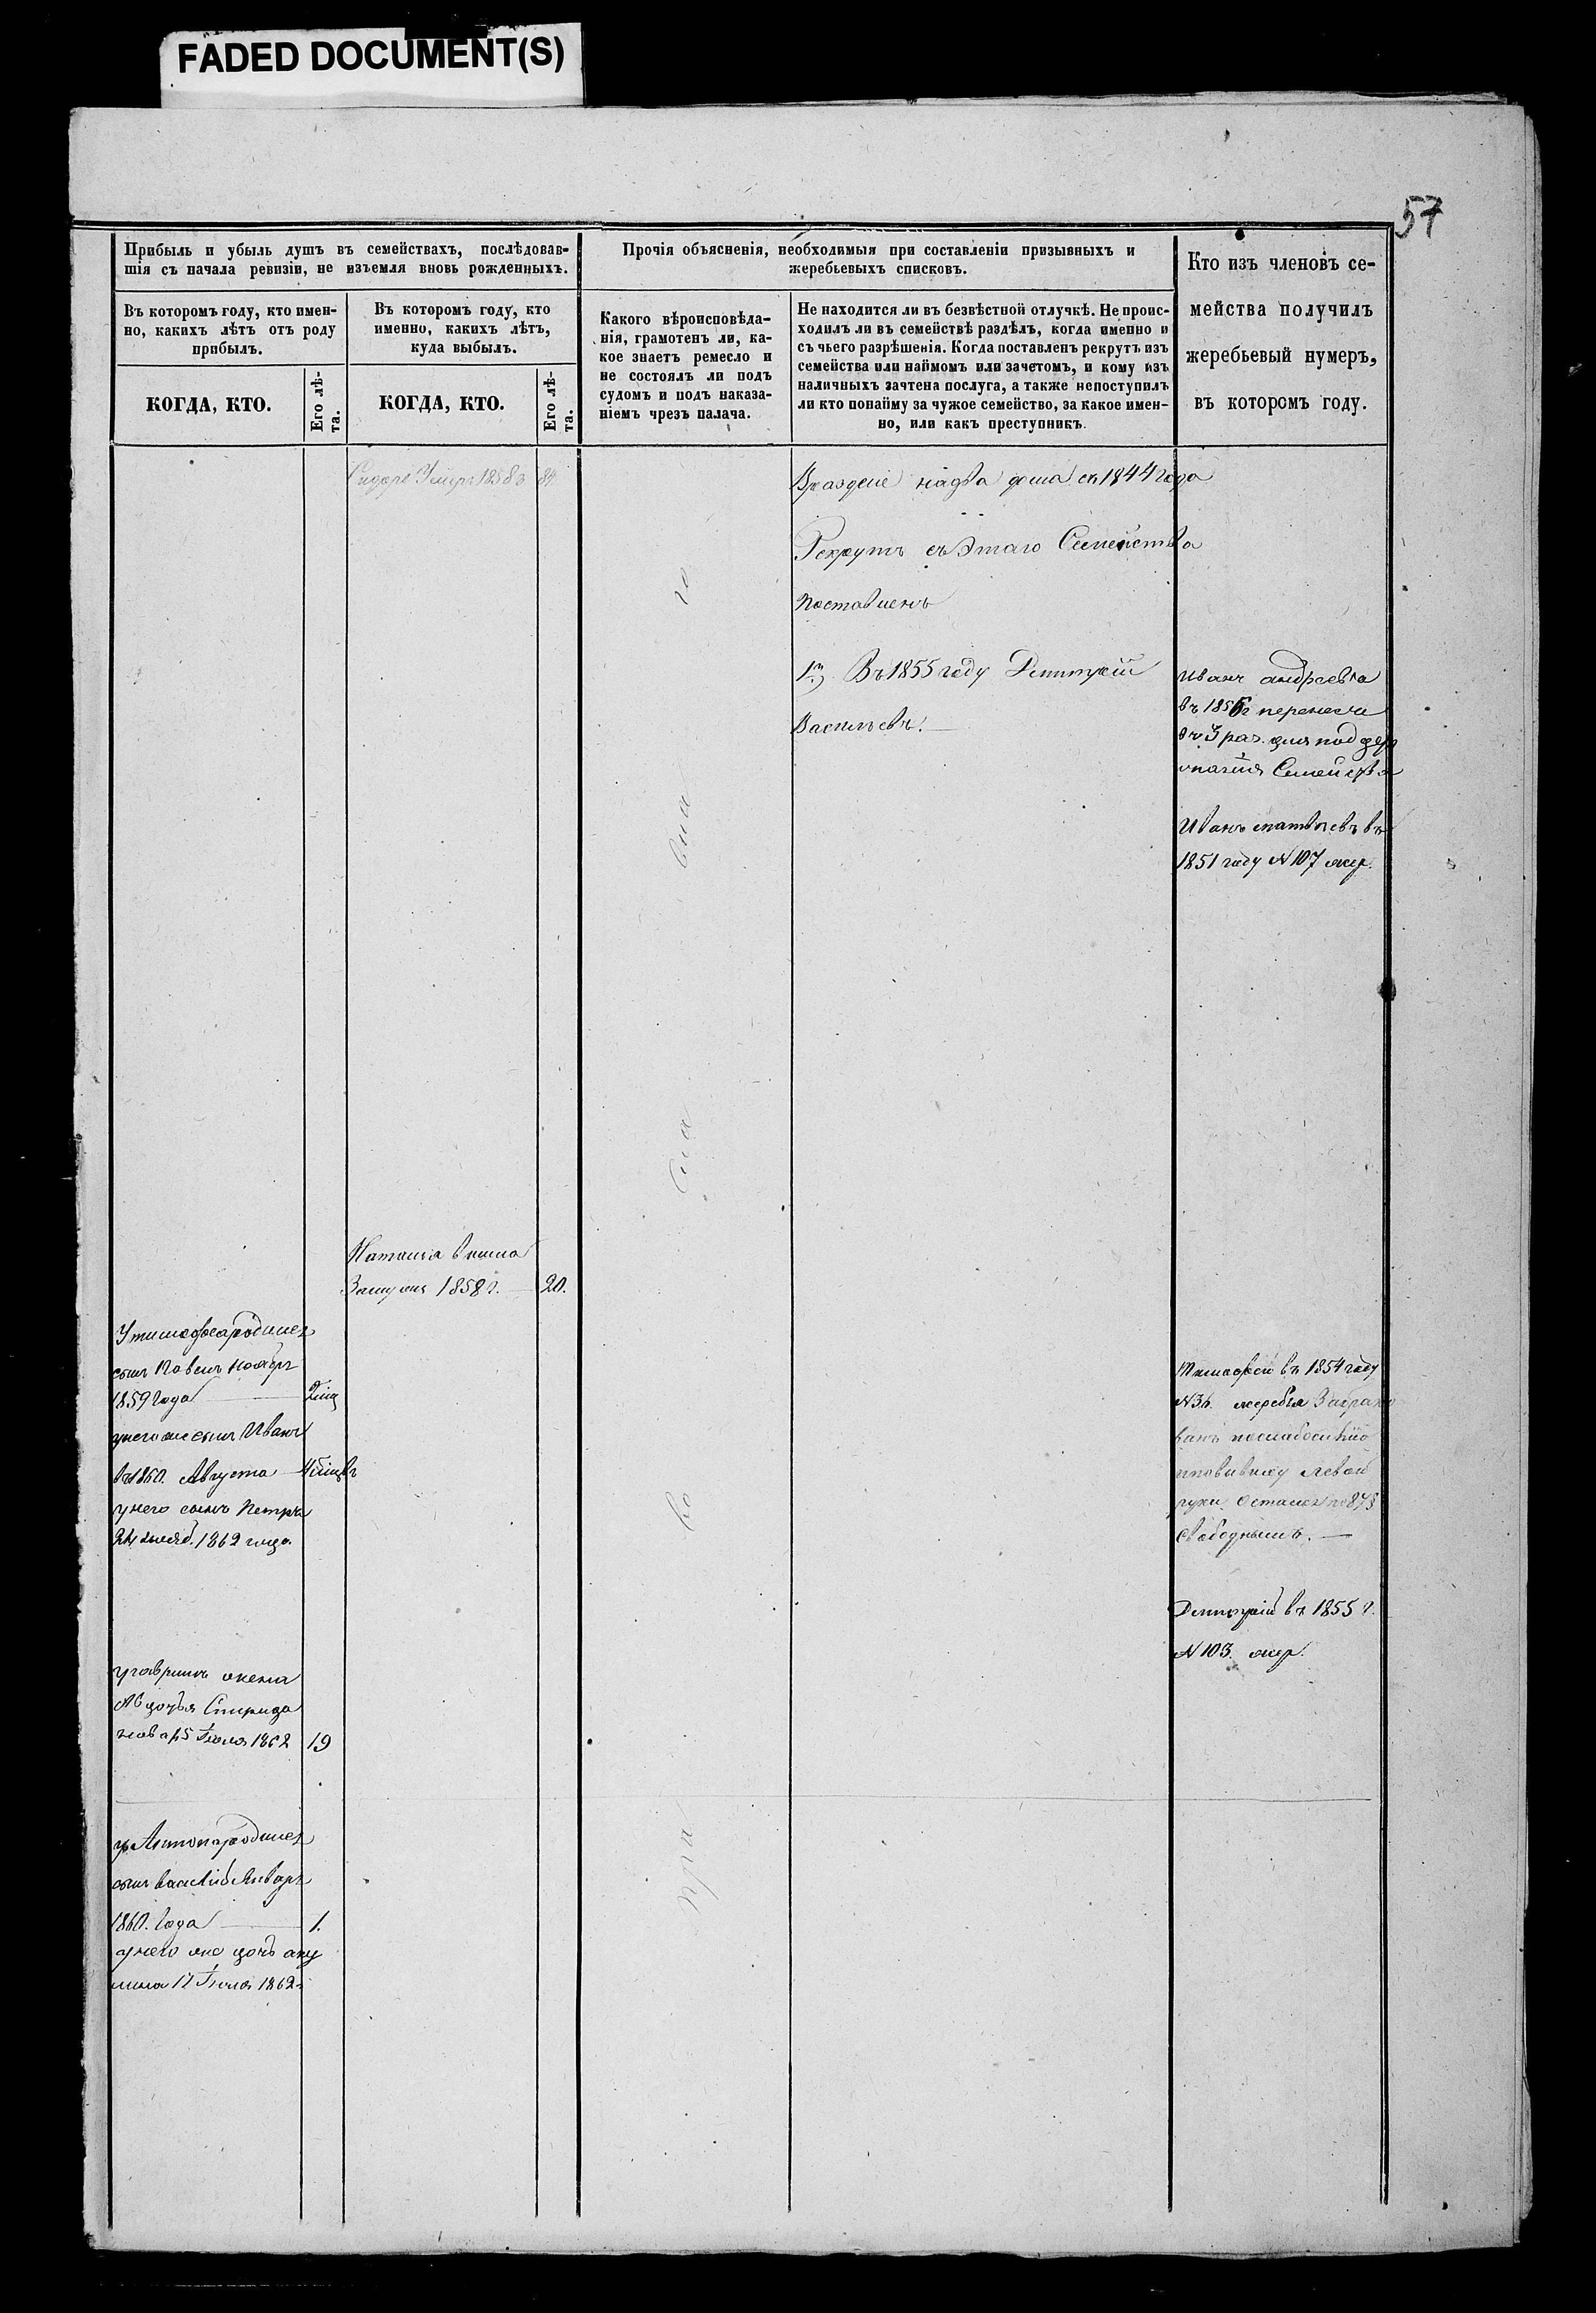 FADED DOCUMENT(S)
57
Прибыль и убыль душъ въ семействахъ, послѣдовав-
шія съ начала ревизіи, не изъемля вновь рожденныхъ.
Въ которомъ году, кто имен-
но, какихъ лѣтъ отъ роду
прибылъ.
КОГДА, КТО.
Его лѣ-
та.
Въ которомъ году, кто
именно, какихъ лѣтъ,
куда выбылъ.
КОГДА, КТО.
Его лѣ-
та.
Прочія объясненія, необходимыя при составленіи призывныхъ и
жеребьевыхъ списковъ.
Какого вѣроисповѣда-
нія, грамотенъ ли, ка-
кое знаетъ ремесло и
не состоялъ ли подъ
судомъ и подъ наказа-
ніемъ чрезъ палача.
Не находится ли въ безвѣстной отлучкѣ. Не проис-
ходилъ ли въ семействѣ раздѣлъ, когда именно и
съ чьего разрѣшенія. Когда поставленъ рекрутъ изъ
семейства или наймомъ или зачетомъ, и кому изъ
наличныхъ зачтена послуга, а также непоступилъ
ли кто понайму за чужое семейство, за какое имен-
но, или какъ преступникъ.
Кто изъ членовъ се-
мейства получилъ
жеребьевый нумеръ,
въ которомъ году.
У тимофеа родился
сынъ Павелъ Ноябръ
1859 года
унегоже сынъ Иванъ
въ 1860. Августа
у него сынъ Петръ
24 1862 года.
у гаврилы жена
Авдотья Спиридо
нова 15 Іюля 1862 19
у Антона родился
сынъ василій Январъ
1860. года 1.
у него же дочь аку
лина 17 Іюля 1862
Сидоръ Умеръ 1858 84
Наталья
Замужъ 1858 г. 20.
пра
во
сла
вна
го
дома съ 1844 года
Рекрутъ съ этаго Семейства
поставленъ
1й) Въ 1855 году Дмитрій
Васильевъ.
Иванъ андреевъ
въ 1856 г перенесенъ
въ 3 раз. для поддер
жанія Семейства
Иванъ матвеевъ въ
1851 году № 107 жер.
Тимофей въ 1854 году
№ 36. жеребья Забрако
ванъ послабосилію
повывиху левой
руки. Остался по 873
Свободнымъ.
Дмитрій въ 1855 г.
№ 103. жер.